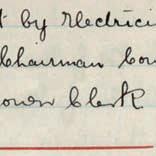 t by Electrici
Chairman Cou
Town Clerk